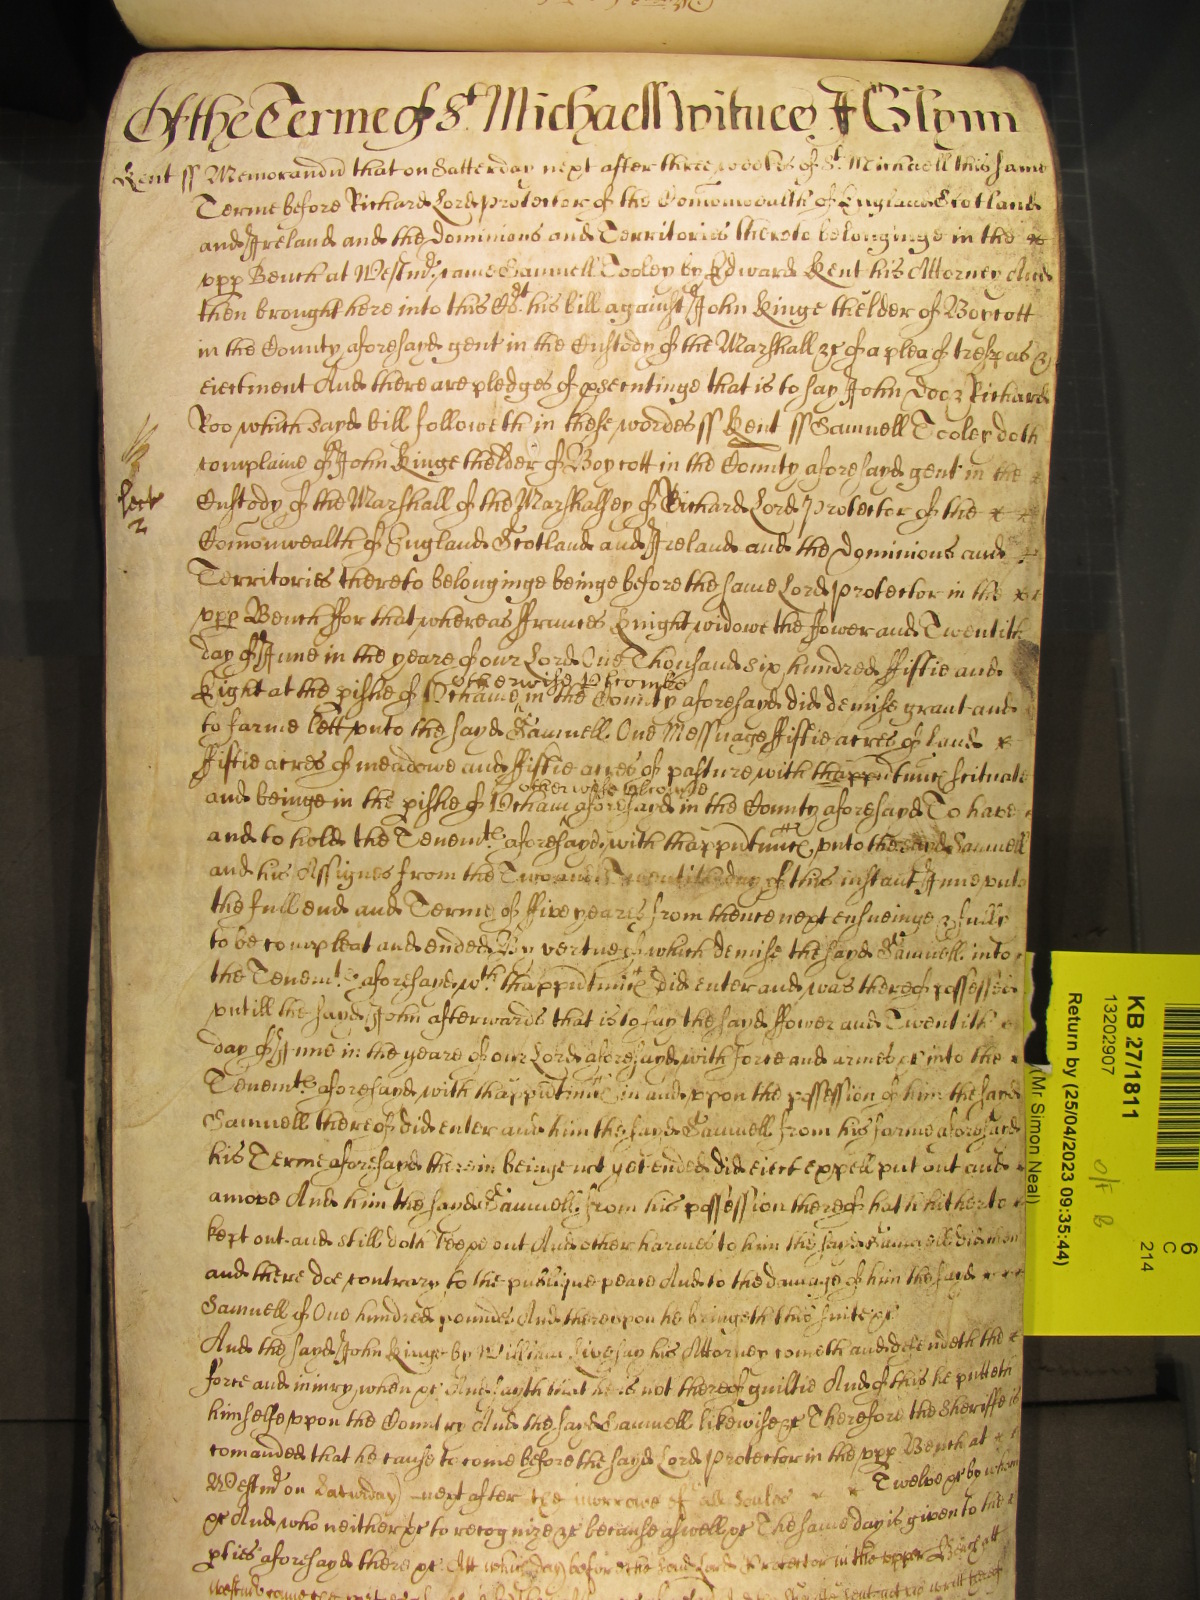 Of the Terme of St Michaell Wittnes J Glynn
Kent ss Memorandu that on Satterday next after three weekes of St Michaell this same
Terme before Richard Lord protector of the Comonwealth of England Scotland
and Ireland and the Dominions and Territories thereto belonginge in the
upp Bench at Westmr came Samuell Tooley by Edward Kent his Attorney And
then brought here into this Cort his bill against John Kinge thelder of Boycott
in the County aforesayd gent in the Custody of the Marshall &c of a plea of trespas &
eiectment And there are pledges of psecutinge that is to say John Doo & Richard
Roo which sayd bill followeth in these wordes ss Kent ss Samuell Tooley doth
complaine of John Kinge thelder of Boycott in the County aforesayd gent in the
Custody of the Marshall of the Marshalsey of Richard Lord protector of the
Comonwealth of England Scotland and Ireland and the Dominions and
Territories thereto belonginge beinge before the same Lord protector in the
upp Bench ffor that whereas ffrances Knight widowe the ffower and Twentith
day of June in the yeare of our Lord One Thousand six hundred ffiftie and
otherwise
Eight at the pishe of Petham in the County aforesayd did demise grant and
to farme lett unto the sayd Samuell One Messuage ffiftie acres of land
ffiftie acres of meadowe and ffiftie acres of pasture with thapptnnces scituate
otherwise
and beinge in the pishe of Petham aforesayd in the County aforesayd To have
and to hold the Tenemts aforesayd with thapptnnces unto the sayd Samuell
and his Assignes from the Two and Twentith day of this instant June unto
the full end and Terme of ffive yeares from thence next ensueinge & fully
to be compleat and ended By vertue of which demise the sayd Samuell into
the Tenemts aforesayd wth thapptnnces did enter and was thereof possessed
untill the sayd John afterwards that is to say the sayd ffower and Twentith
day of June in the yeare of our Lord aforesayd with force and armes &c into the
Tenemts aforesayd with thapptnnces in and uppon the possession of him the sayd
Samuell thereof did enter and him the sayd Samuell from his farme aforesayd
his Terme aforesayd therein beinge not yet ended did eiect expell put out and
amove And him the sayd Samuell from his possession thereof hath hitherto
kept out and still doth keepe out And other harmes to him the sayd Samuell did then
and there doe contrary to the publique peace And to the damage of him the sayd
Samuell of One hundred pounds And thereupon he bringeth this suite &c
And the sayd John Kinge by William Livesay his Attorney cometh and defendeth the
force and iniury when &c And sayth that he is not thereof guiltie And of this he putteth
himselfe uppon the Country And the sayd Samuell likewise &c Therefore the Sheriffe is
comanded that he cause to come before the sayd Lord Protector in the upp Bench at
Westmr on Saturday next after the morrowe of all Soules Twelve &c by whom
&c And who neither &c to recognize &c because aswell &c The same day is given to the
pties aforesayd there &c Att which day before the said Lord Protector in the upper Bench att
KB 27/1811
13202907
Return by (25/04/2023 09:35:44)
(Mr Simon Neal)
6
C
214